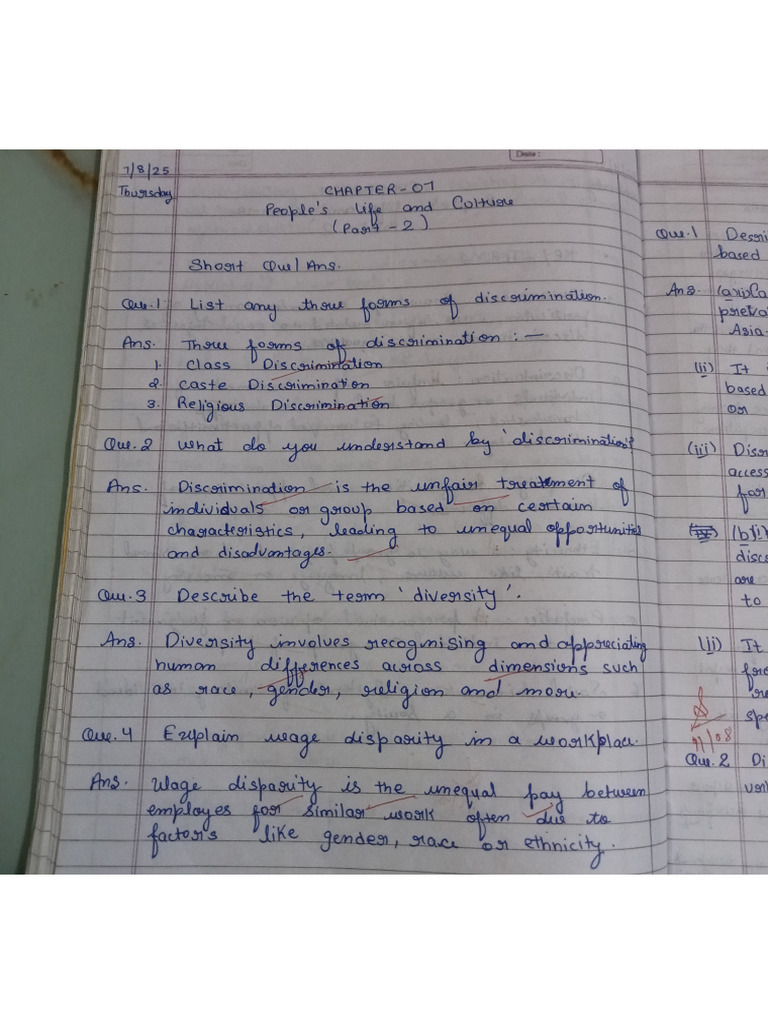 Date :
7/8/25
Thursday
CHAPTER-07
People's Life and Culture
(Part - 2)
Short Que/Ans.
Que.1 List any three forms of discrimination.
Ans. Three forms of discrimination : —
1. Class Discrimintation
2. Caste Discrimination
3. Religious Discrimination
Que.2 What do you understand by 'discrimination'?
Ans. Discrimination is the unfair treatment of
individuals or group based on certain
characteristics, leading to unequal opportunities
and disadvantages.
Que.3 Describe the term 'diversity'.
Ans. Diversity involves recognising and appreciating
human differences across dimensions such
as race, gender, religion and more.
Que.4 Explain wage disparity in a workplace.
Ans. Wage disparity is the unequal pay between
employes for similar work often due to
factors like gender, race or ethnicity.
Que.1
based
Ans.
Asia
(ii) It
based
or
(iii)
access
for
are
to
(ii) It
Que.2